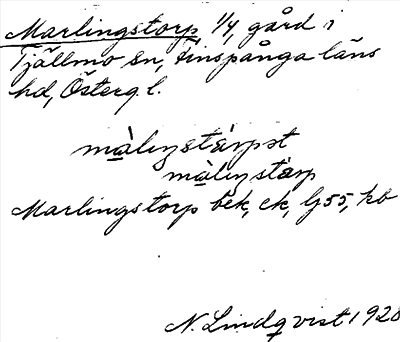 Marlingstorp, 1/4, gård i
Tjällmo sn, Finspånga läns
hd, Östergl.
màlıŋstàrpst
màlıŋstàrp
Marlingstorp bek, ek, lj 55, kb
N. Lindqvist 1928